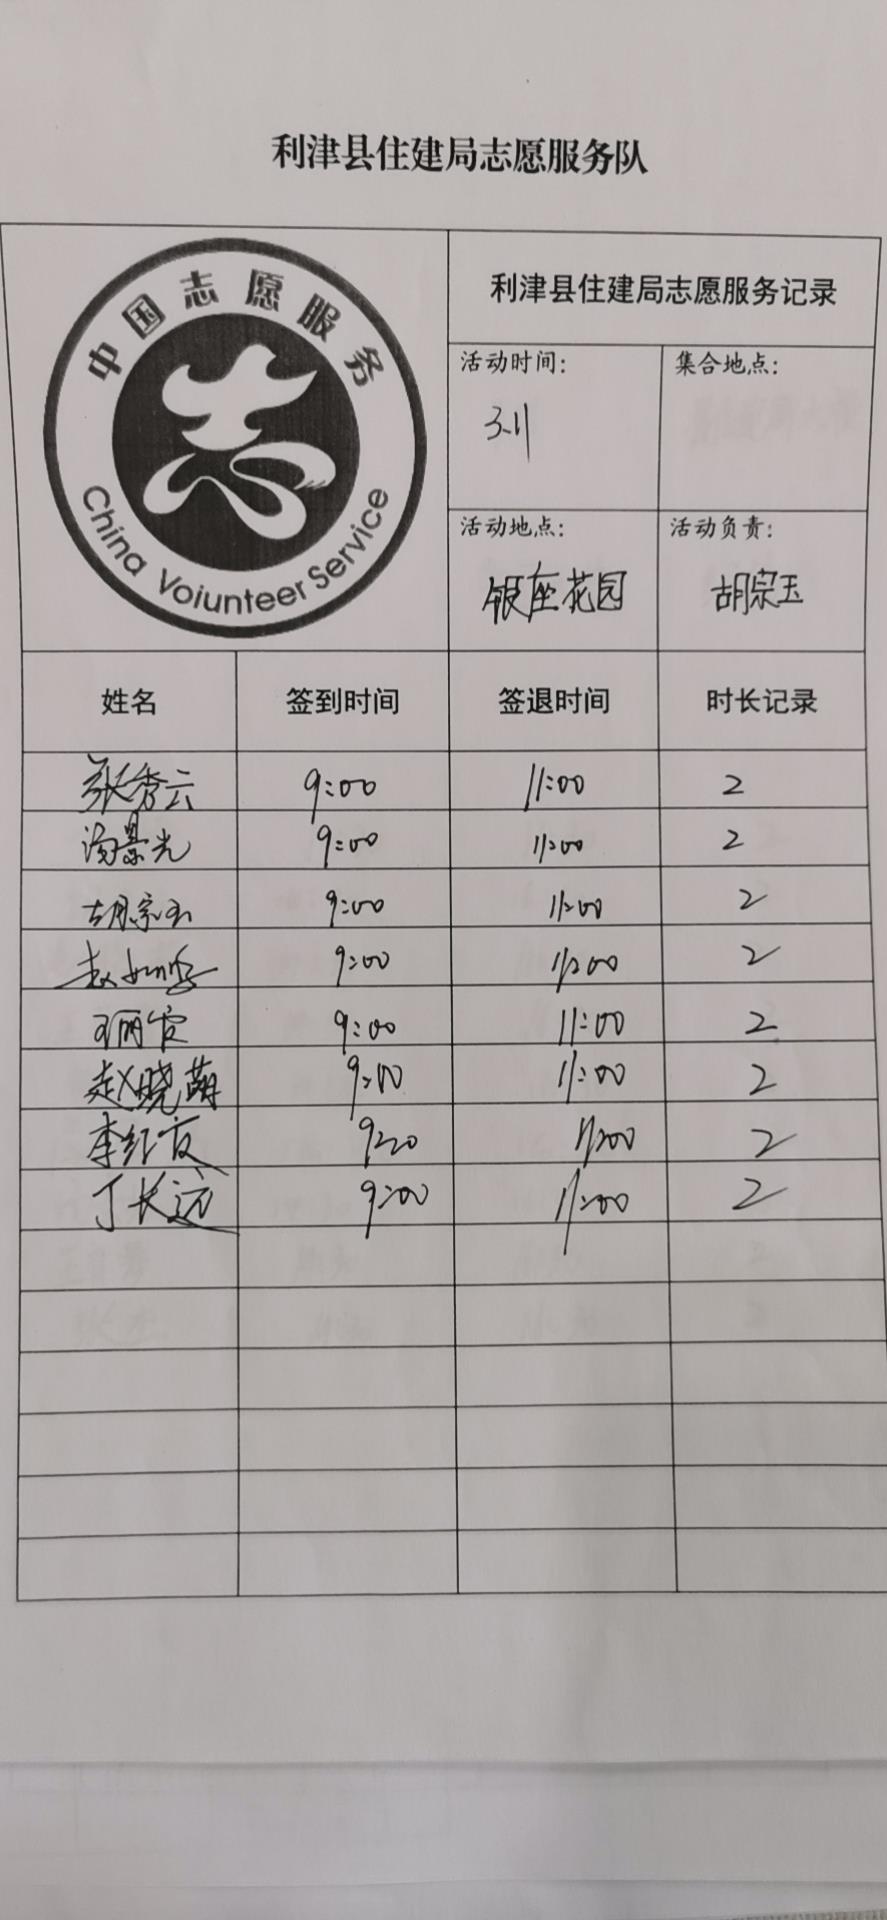 利津县住建局志愿服务队
中国志愿服务
China Voiunteer Service
利津县住建局志愿服务记录
活动时间: 集合地点:
3.11
活动地点: 活动负责:
银座花园 胡宗玉
姓名 签到时间 签退时间 时长记录
张秀云 9:00 11:00 2
景光 9:00 11:00 2
胡宗玉 9:00 11:00 2
赵 9:00 11:00 2
王丽霞 9:00 11:00 2
赵晓萌 9:00 11:00 2
李红霞 9:00 11:00 2
丁长远 9:00 11:00 2